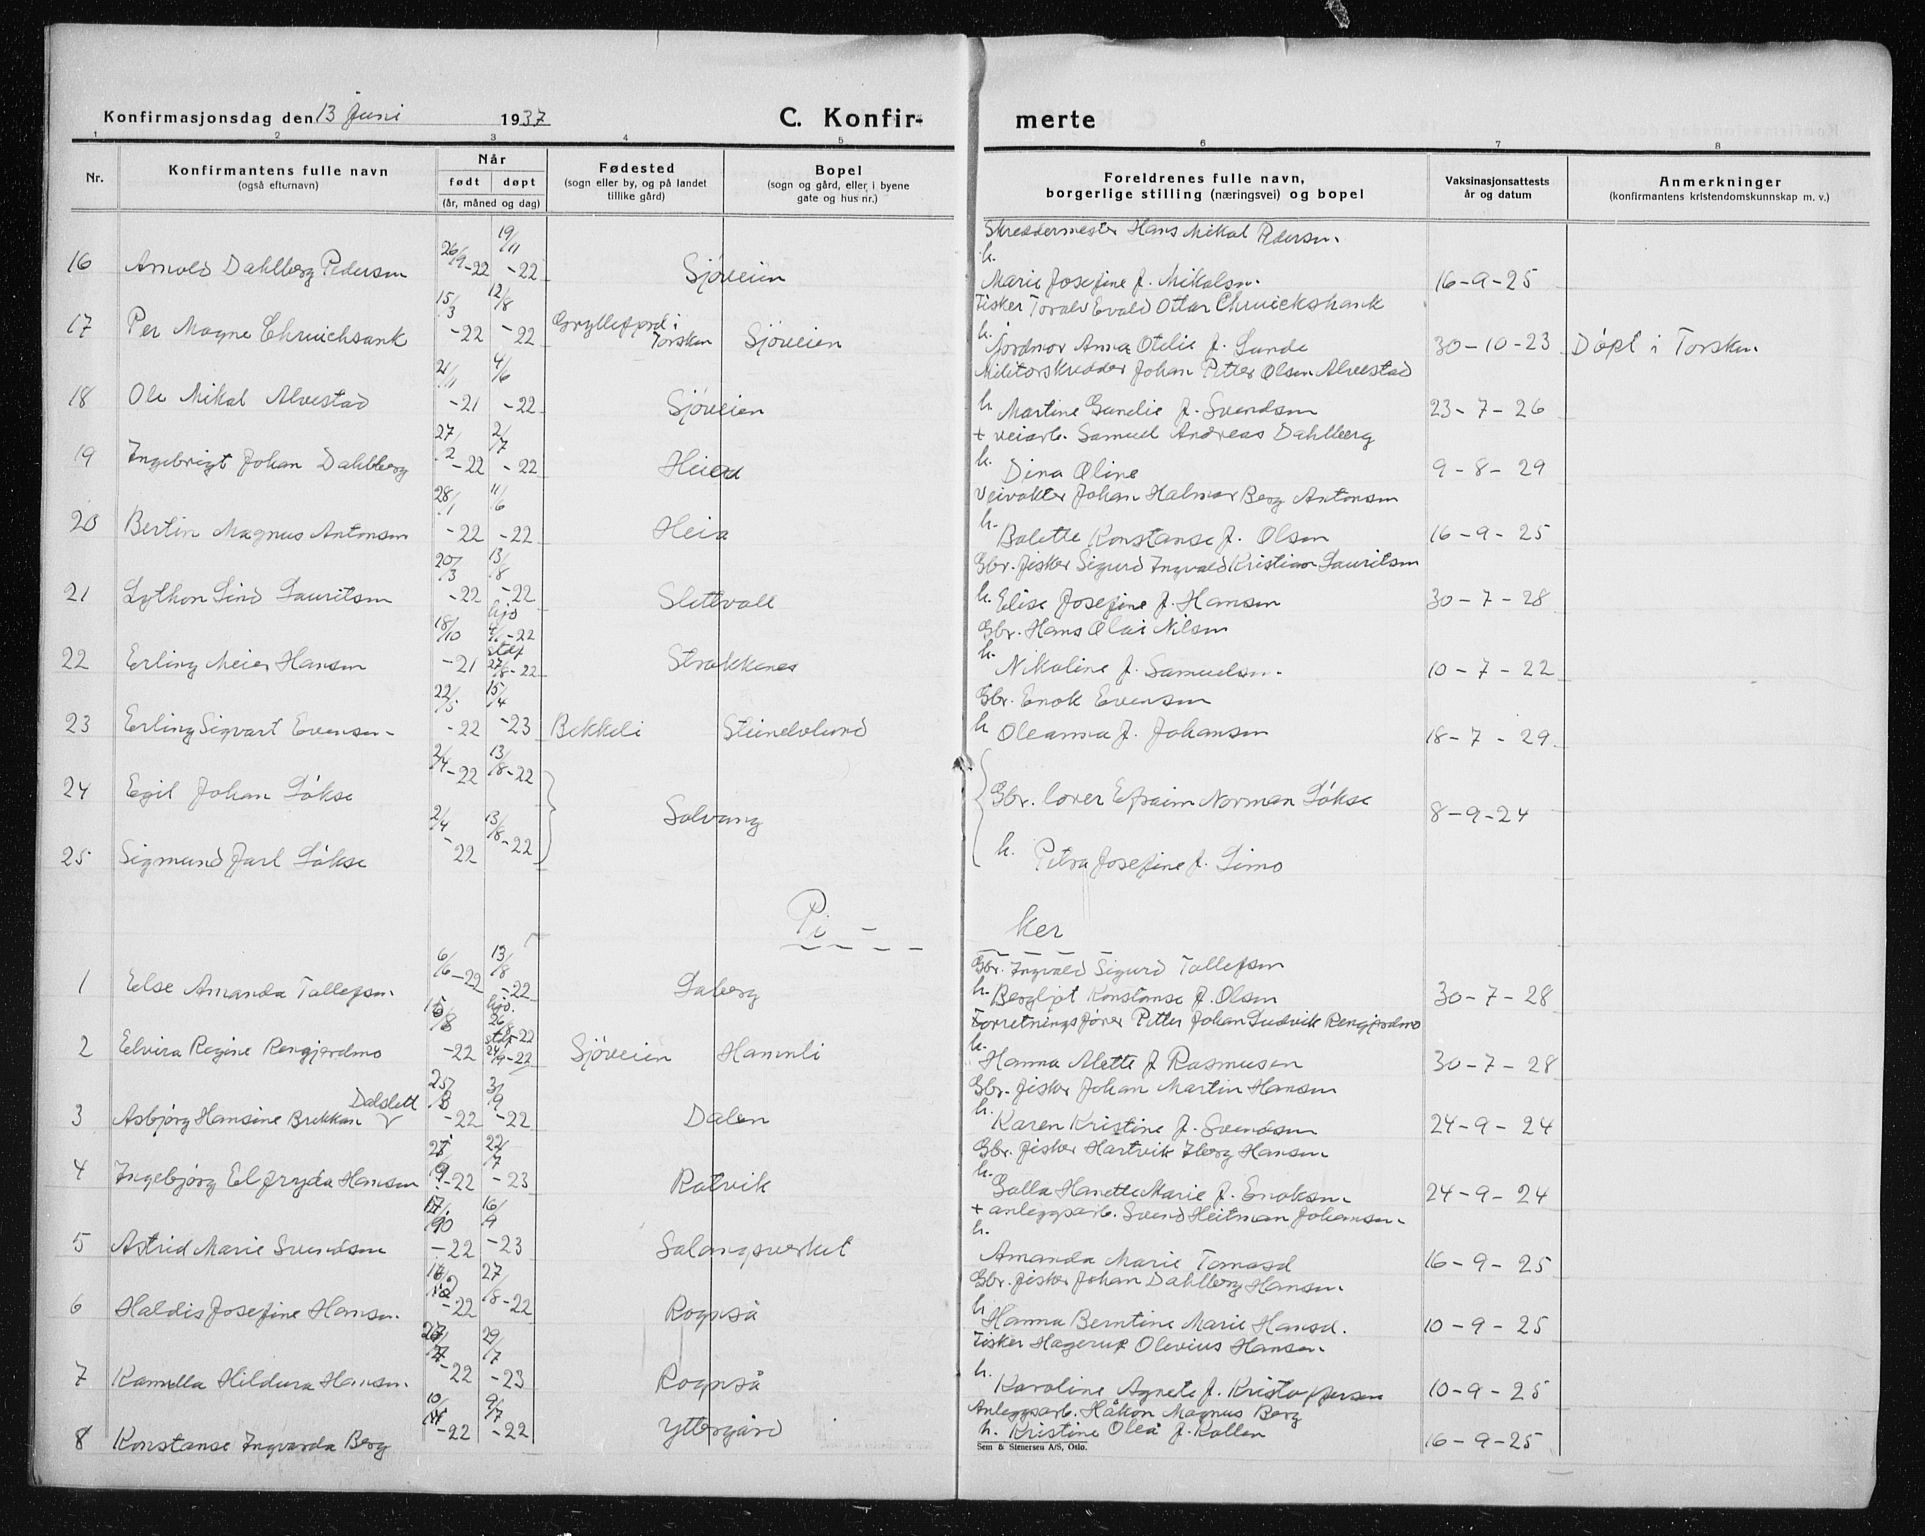 Konfirmasjonsdag den 13 Juni 1937 C. Konfir-
merte
1 2 3 4 5 6 7 8
Nr.
Konfirmantens fulle navn
(også efternavn)
Når
født døpt
(år, måned og dag)
Fødested
(sogn eller by, og på landet
tillike gård)
Bopel
(sogn og gård, eller i byene
gate og hus nr.)
Foreldrenes fulle navn,
borgerlige stilling (næringsvei) og bopel
Vaksinasjonsattests
år og datum
Anmerkninger
(konfirmantens kristendomskunnskap m. v.)
Skreddermester Hans Mikal Pedersen.
16 Arnold Dahlberg Pedersen 26/9-22 19/11-22 Sjøveien
h. Marie Josefine f. Mikalsen. 16-9-25
Fisker Toralv Evald Ottar Chruickshank
17 Per Magne Chruichsank 15/3-22 12/8-22 Gryllefjord i Torsken Sjøveien
h. Jordmor Anna Otelie f. Lunde 30-10-23 Døpt i Torsken
Militærskredder Johan Petter Olsen Alvestad
18 Ole Mikal Alvestad 21/11-21 4/6-22 Sjøveien
h. Martine Gunelie f. Svendsen 23-7-26
+ veiarb. Samuel Andreas Dahlberg
19 Ingebrigt Johan Dahlberg 27/2-22 2/7-22 Heia
h. Dina Oline 9-8-29
Veivokter Johan Halmar Berg Antonsen
20 Bertin Magnus Antonsen 28/1-22 11/6-22 Heia
h. Bolette Konstanse f. Olsen 16-9-25
Gbr. fisker Sigurd Ingvald Kristian Lauritsen
21 Lython Lind Lauritsen 20/3-22 13/8-22 Slettvoll
h. Elise Josefine f. Hansen 30-7-28
Gbr. Hans Olai Nilsen
22 Erling Meier Hansen 18/10-21 hjd 4/1-22 stdf 27/8-22 Strokkenes
h. Nikoline f. Samuelsen. 10-7-22
Gbr. Enok Evensen
23 Erling Sigvart Evensen 22/5-22 15/4-23 Bekkeli Steindelund
h Oleanna f. Johansen 18-7-29
24 Egil Johan Løkse 2/4-22 13/8-22 Solvang
Gbr. lærer Efraim Norman Løkse 8-9-24
25 Sigmund Jarl Løkse 2/4-22 13/8-22
h. Petra Josefine f. Simo
Pi ker
Gbr. Ingvald Sigurd Tollefsen
1 Else Amanda Tollefsen. 6/6-22 13/8-22 Laberg
h. Bergljot Konstanse f. Olsen 30-7-28
Forretningsfører Petter Johan Ludvik Rengjerdmo
2 Elvira Regine Rengjerdmo 15/8-22 hjd. 26/8-22 stdf 24/9-22 Sjøveien Hamnli
h. Hanna Alette f Rasmussen 30-7-28
Gbr. fisker Johan Martin Hansen
3 Asbjørg Hansine Brekkan Dalslett 25/8-22 3/9-22 Dalen
h. Karen Kristine f. Svendsen 24-9-24
Gbr. fisker Hartvik Iberg Hansen
4 Ingebjørg Elfryda Hansen 27/9-22 22/7-23 Rotvik
h. Golla Hanette Marie f. Enoksen 24-9-24
+ anleggsarb. Svend Heitman Johansen.
5 Astrid Marie Svendsen 17/10-22 16/9-23 Salangsverket
h. Amanda Marie Tomasd 16-9-25
Gbr. fisker Johan Dahlberg Hansen.
6 Haldis Josefine Hansen. -22 27/8-22 Rognså
h. Hanna Berntine Marie Hansd. 10-9-25
Fisker Hagerup Olevius Hansen.
7 Kamilla Hildura Hansen. -22 29/7-23 Rognså
h. Karoline Agnete f. Kristoffersen 10-9-25
Anleggsarb. Håkon Magnus Berg
8 Konstanse Ingvarda Berg -22 9/7-22 Yttergård
h. Kristine Olea f. Kollen 16-9-25
Sem & Stenersen A/S, Oslo.